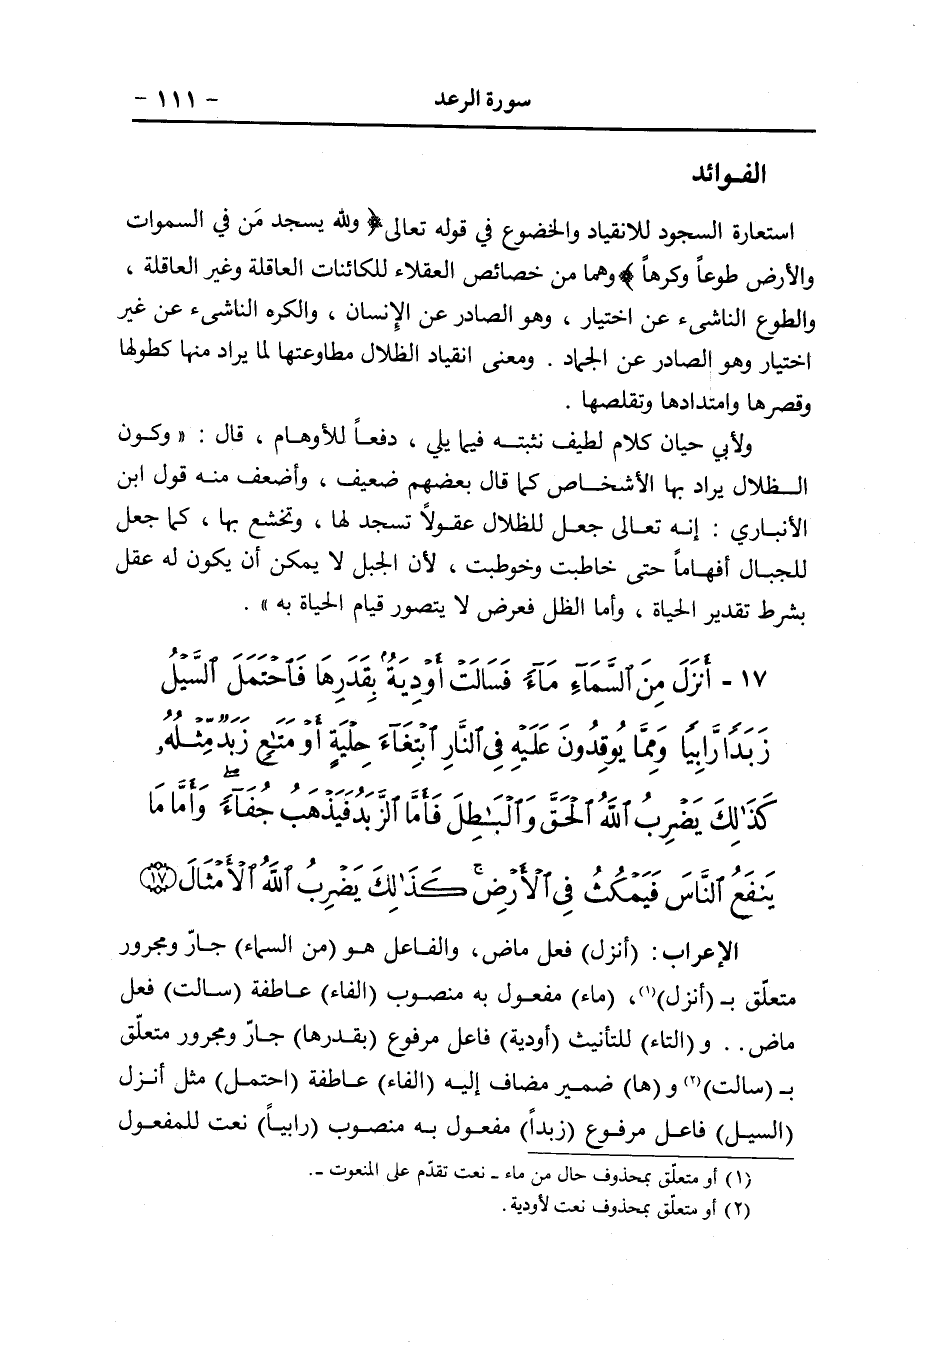 سورة الرعد - ١١١ -
الفـوائد
استعارة السجود للانقياد والخضوع في قوله تعالى ﴿ ولله يسجد مَن في السموات
والأرض طوعاً وكرهاً ﴾ وهما من خصائص العقلاء للكائنات العاقلة وغير العاقلة ،
والطوع الناشىء عن اختيار ، وهو الصادر عن الإنسان ، والكره الناشىء عن غير
اختيار وهو الصادر عن الجماد . ومعنى انقياد الظلال مطاوعتها لما يراد منها كطولها
وقصرها وامتدادها وتقلصها .
ولأبي حيان كلام لطيف نثبته فيما يلي ، دفعاً للأوهام ، قال : « وكون
الظلال يراد بها الأشخاص كما قال بعضهم ضعيف ، وأضعف منه قول ابن
الأنباري : إنه تعالى جعل للظلال عقولاً تسجد لها ، وتخشع بها ، كما جعل
للجبال أفهاماً حتى خاطبت وخوطبت ، لأن الجبل لا يمكن أن يكون له عقل
بشرط تقدير الحياة ، وأما الظل فعرض لا يتصور قيام الحياة به » .
١٧ - أَنزَلَ مِنَ ٱلسَّمَآءِ مَآءً فَسَالَتْ أَوْدِيَةٌۢ بِقَدَرِهَا فَٱحْتَمَلَ ٱلسَّيْلُ
زَبَدًا رَّابِيًا وَمِمَّا يُوقِدُونَ عَلَيْهِ فِى ٱلنَّارِ ٱبْتِغَآءَ حِلْيَةٍ أَوْ مَتَٰعٍ زَبَدٌ مِّثْلُهُۥ
كَذَٰلِكَ يَضْرِبُ ٱللَّهُ ٱلْحَقَّ وَٱلْبَٰطِلَ فَأَمَّا ٱلزَّبَدُ فَيَذْهَبُ جُفَآءً ۖ وَأَمَّا مَا
يَنفَعُ ٱلنَّاسَ فَيَمْكُثُ فِى ٱلْأَرْضِ ۚ كَذَٰلِكَ يَضْرِبُ ٱللَّهُ ٱلْأَمْثَالَ ﴿١٧﴾
الإعراب : (أنزل) فعل ماض، والفاعل هو (من السماء) جارّ ومجرور
متعلّق بـ (أنزل)(١)، (ماء) مفعول به منصوب (الفاء) عاطفة (سالت) فعل
ماض . . و (التاء) للتأنيث (أودية) فاعل مرفوع (بقدرها) جارّ ومجرور متعلّق
بـ (سالت)(٢) و (ها) ضمير مضاف إليه (الفاء) عاطفة (احتمل) مثل أنزل
(السيل) فاعل مرفوع (زبداً) مفعول به منصوب (رابياً) نعت للمفعول
(١) أو متعلّق بمحذوف حال من ماء ـ نعت تقدّم على المنعوت ـ .
(٢) أو متعلّق بمحذوف نعت لأودية .